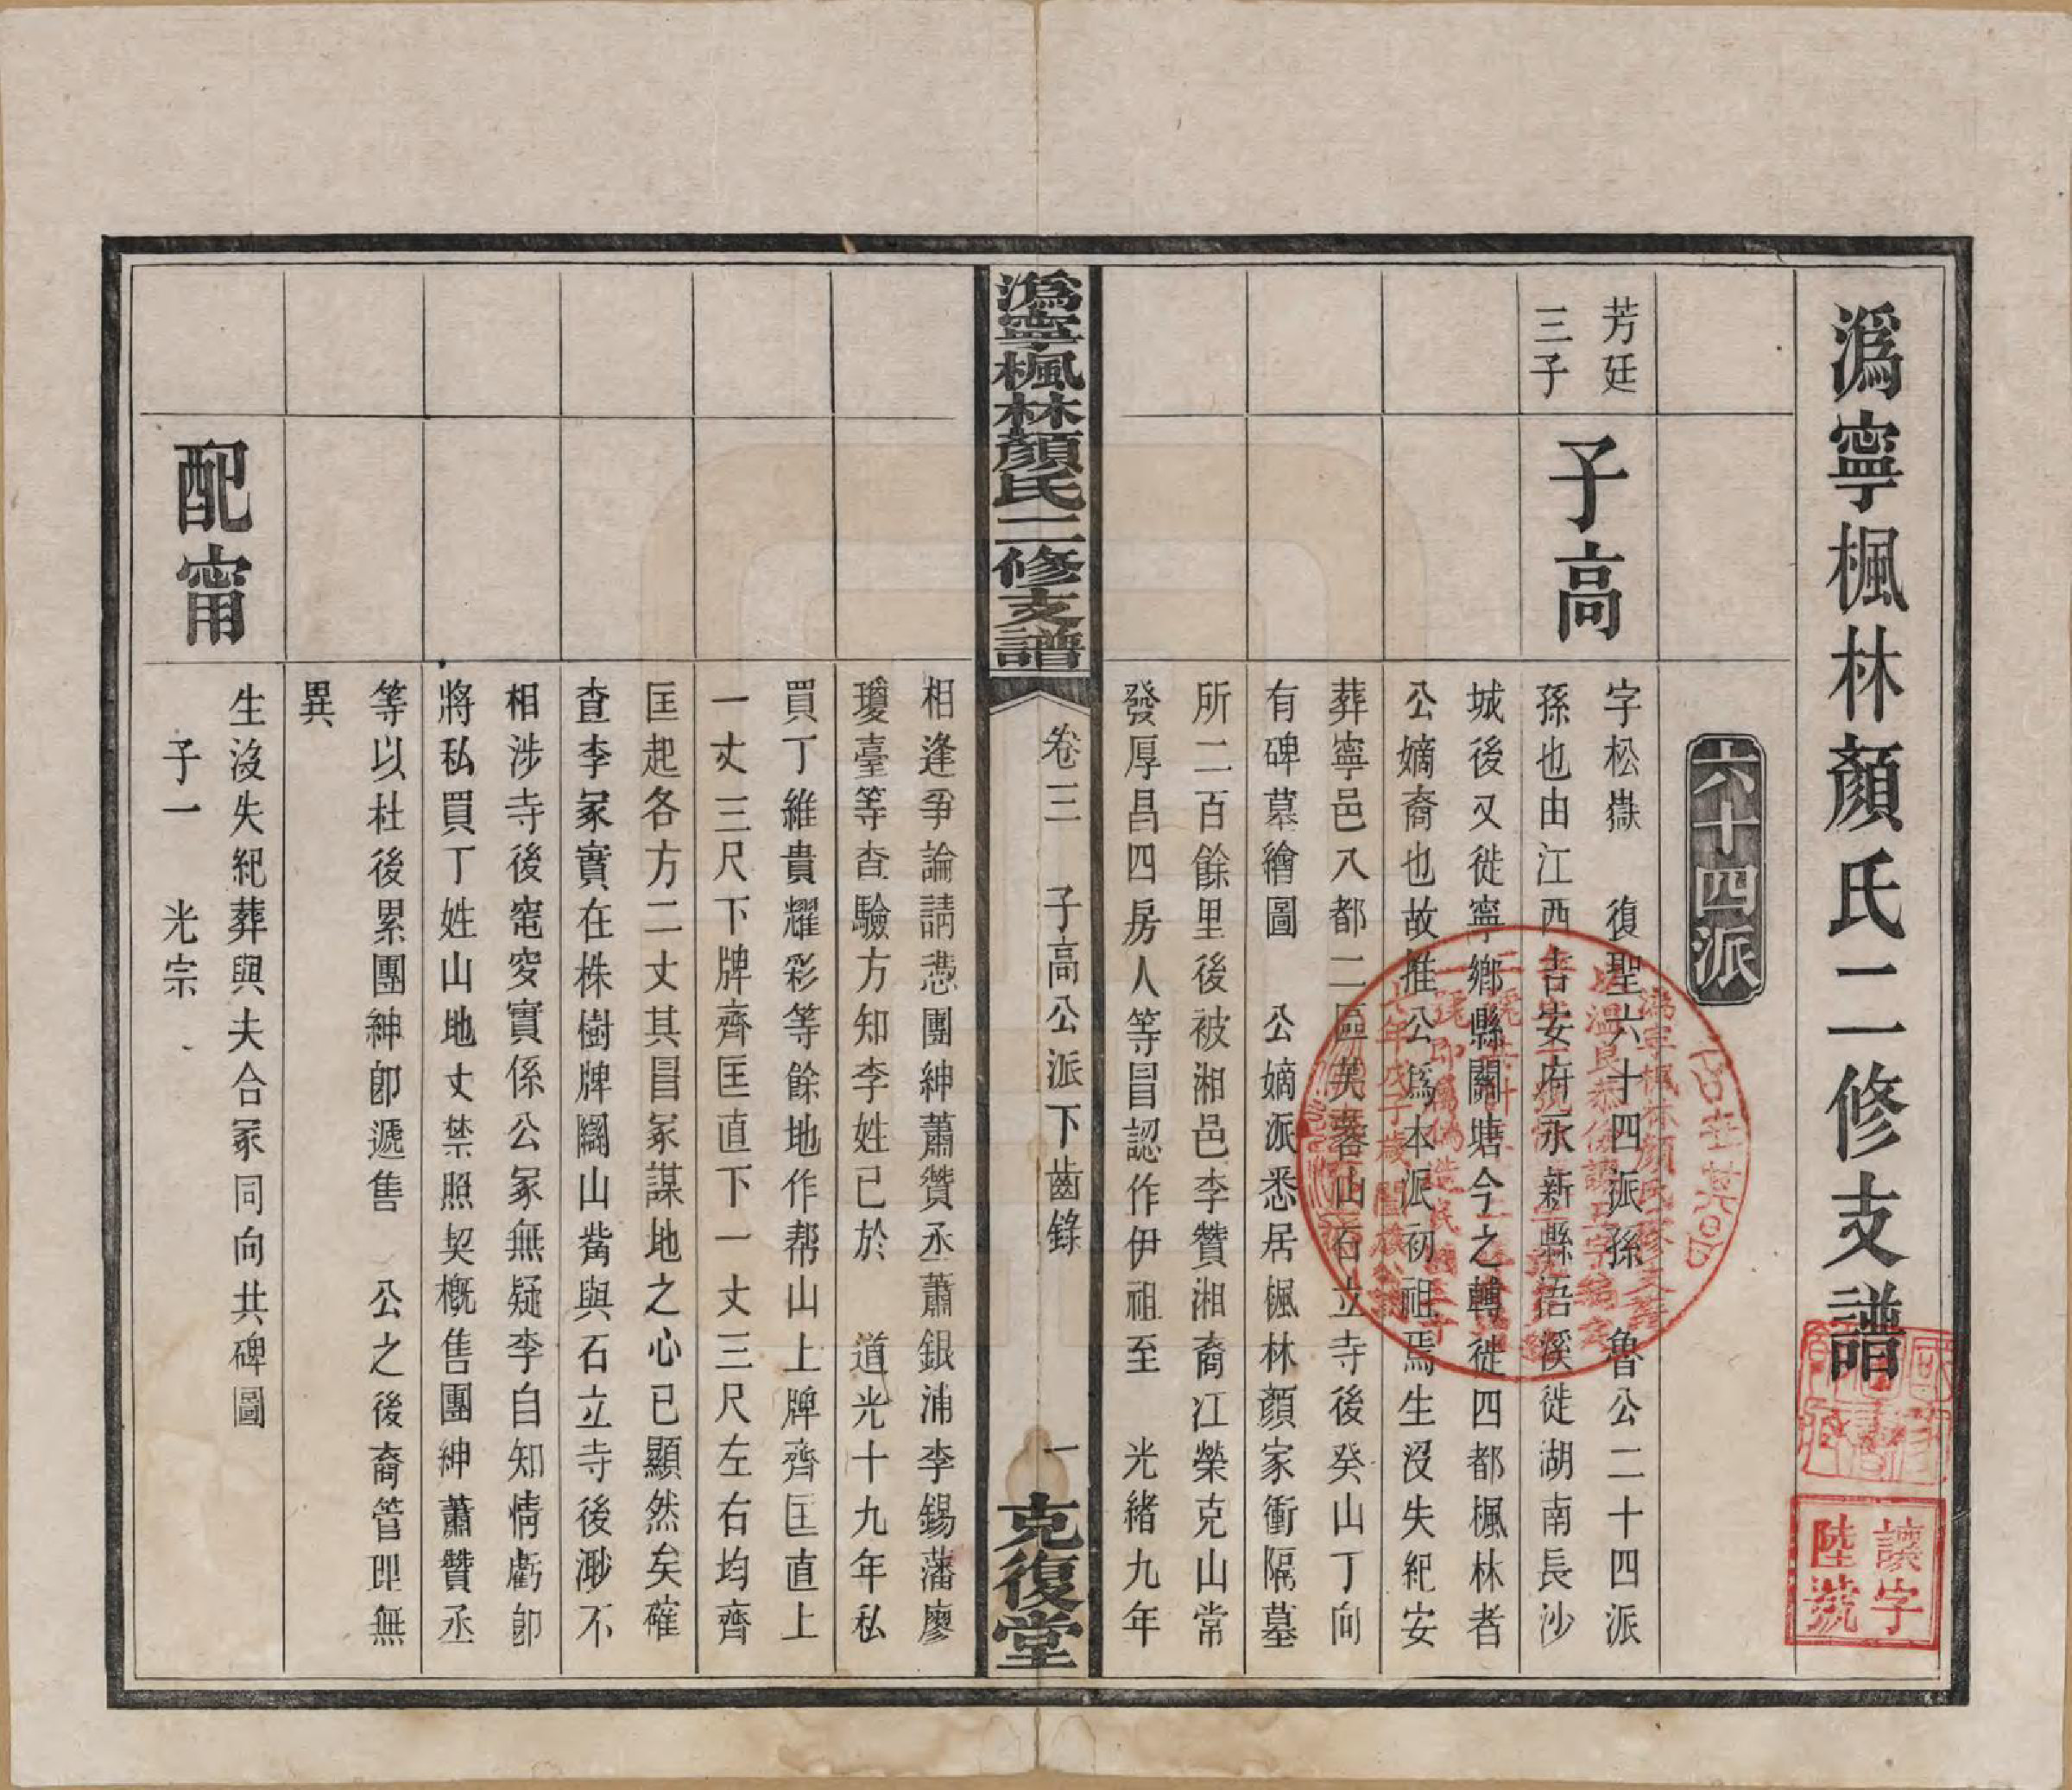 溈寧楓林顏氏二修支譜
六十四派
芳廷
三子
子高
字松嶽　復聖六十四派孫　魯公二十四派
孫也由江西吉安府永新縣浯溪徙湖南長沙
城後又徙寧鄉縣關塘今之轉徙四都楓林者
公嫡裔也故推公為本派初祖焉生沒失紀安
葬寧邑八都二區芙蓉山石立寺後癸山丁向
有碑墓繪圖　公嫡派悉居楓林顏家衝隔墓
所二百餘里後被湘邑李贊湘裔江榮克山常
發厚昌四房人等冒認作伊祖至　光緒九年
溈寧楓林顏氏二修支譜
卷三　子高公派下齒錄
一
克復堂
相逢爭論請憑團紳蕭贊丞蕭銀浦李錫藩廖
瓊臺等查驗方知李姓已於　道光十九年私
買丁維貴耀彩等餘地作帮山上牌齊匡直上
一丈三尺下牌齊匡直下一丈三尺左右均齊
匡起各方二丈其冒冢謀地之心已顯然矣確
查李冢實在株樹牌闊山觜與石立寺後渺不
相涉寺後窀穸實係公冢無疑李自知情虧即
將私買丁姓山地丈禁照契概售團紳蕭贊丞
等以杜後累團紳即遞售　公之後裔管理無
異
配甯
生沒失紀葬與夫合冢同向共碑圖
子一　光宗
讓字
陸號